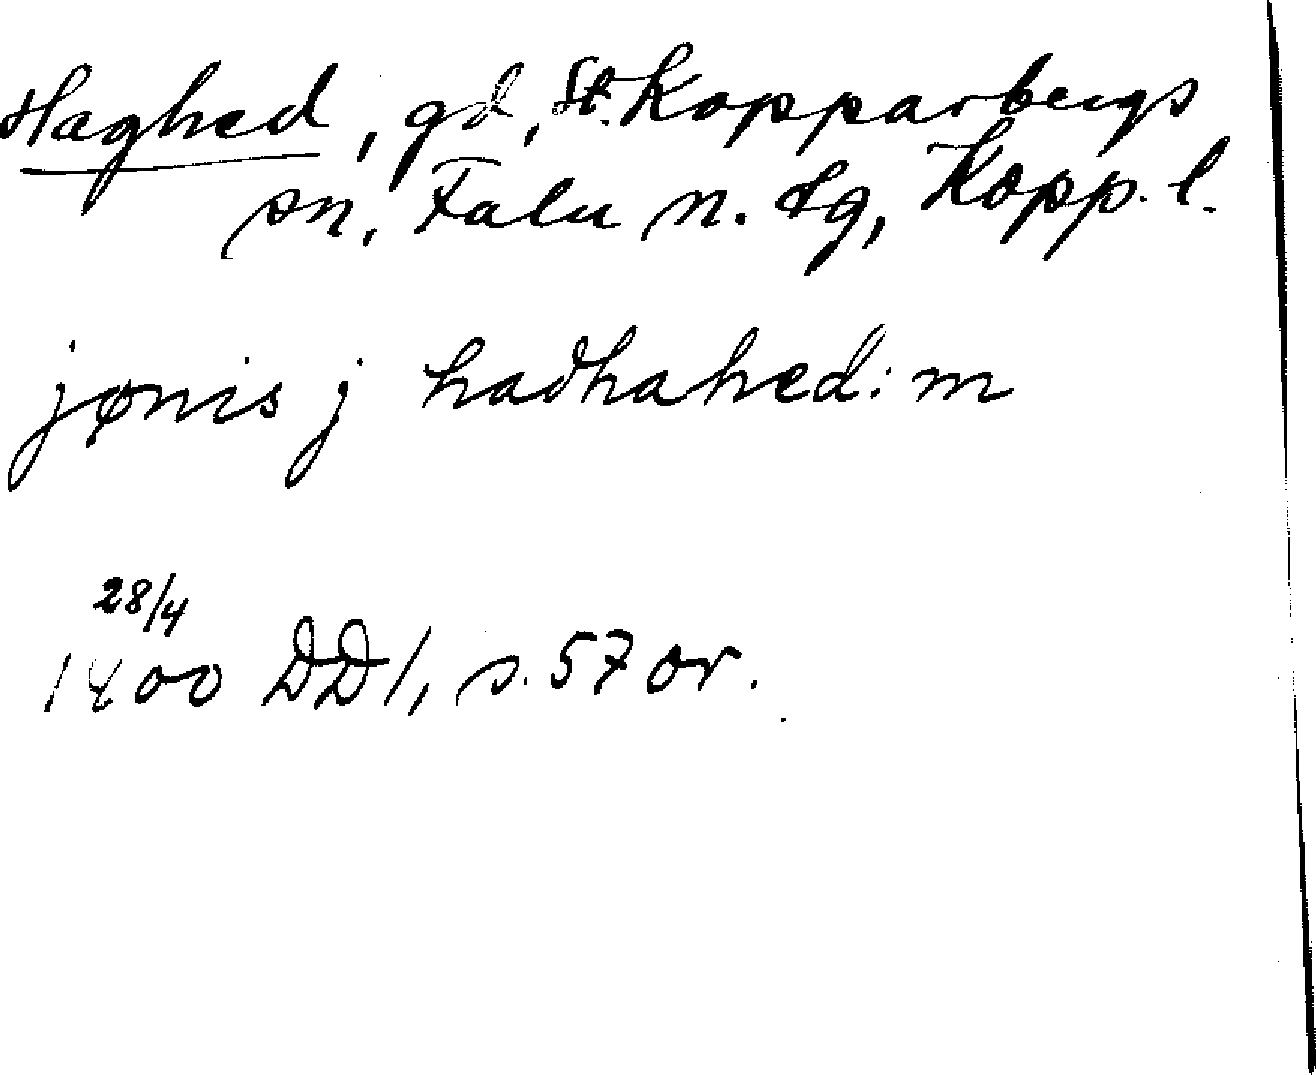 Haghed, gd, St. Kopparbergs
sn, Falu n. dg, Kopp. l.
jønis j hadhahed:m
28/4
1400 DD1, s. 57 or.